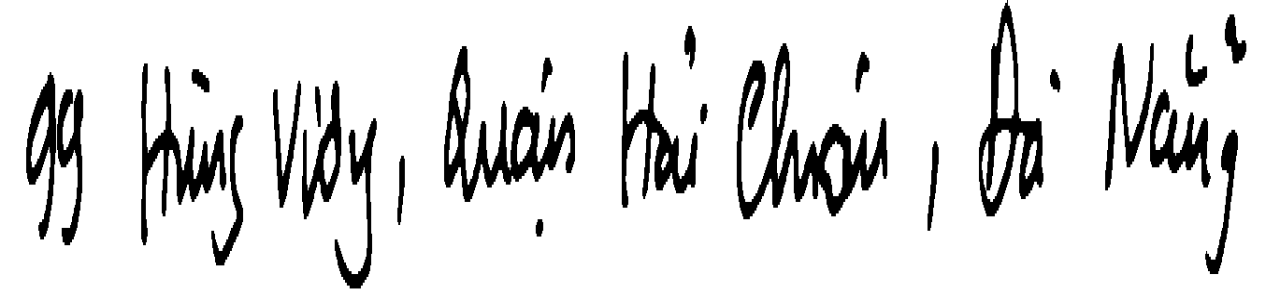 99 Hùng Vương, Quận Hải Châu, Đà Nẵng